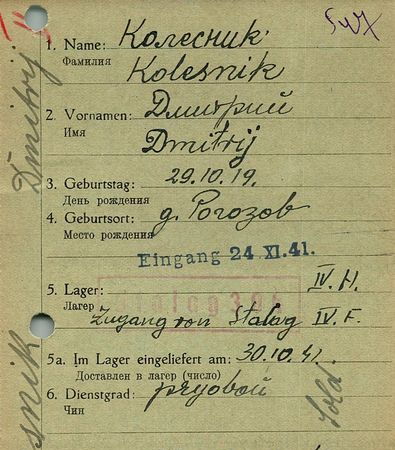 1. Name: Колесник
Фамилия Kolesnik
2. Vornamen: Дмитрий
Имя Dmitrij
3. Geburtstag: 29.10.19.
День рождения
4. Geburtsort: д. Рогозов
Место рождения
Eingang 24 XI. 41.
5. Lager: IV. H.
Лагер
Zugang von Stalag IV. F.
5a. Im Lager eingeliefert am: 30.10.41.
Доставлен в лагер (число)
6. Dienstgrad: рядовой
Чин
Dmitrij
snik
Sold